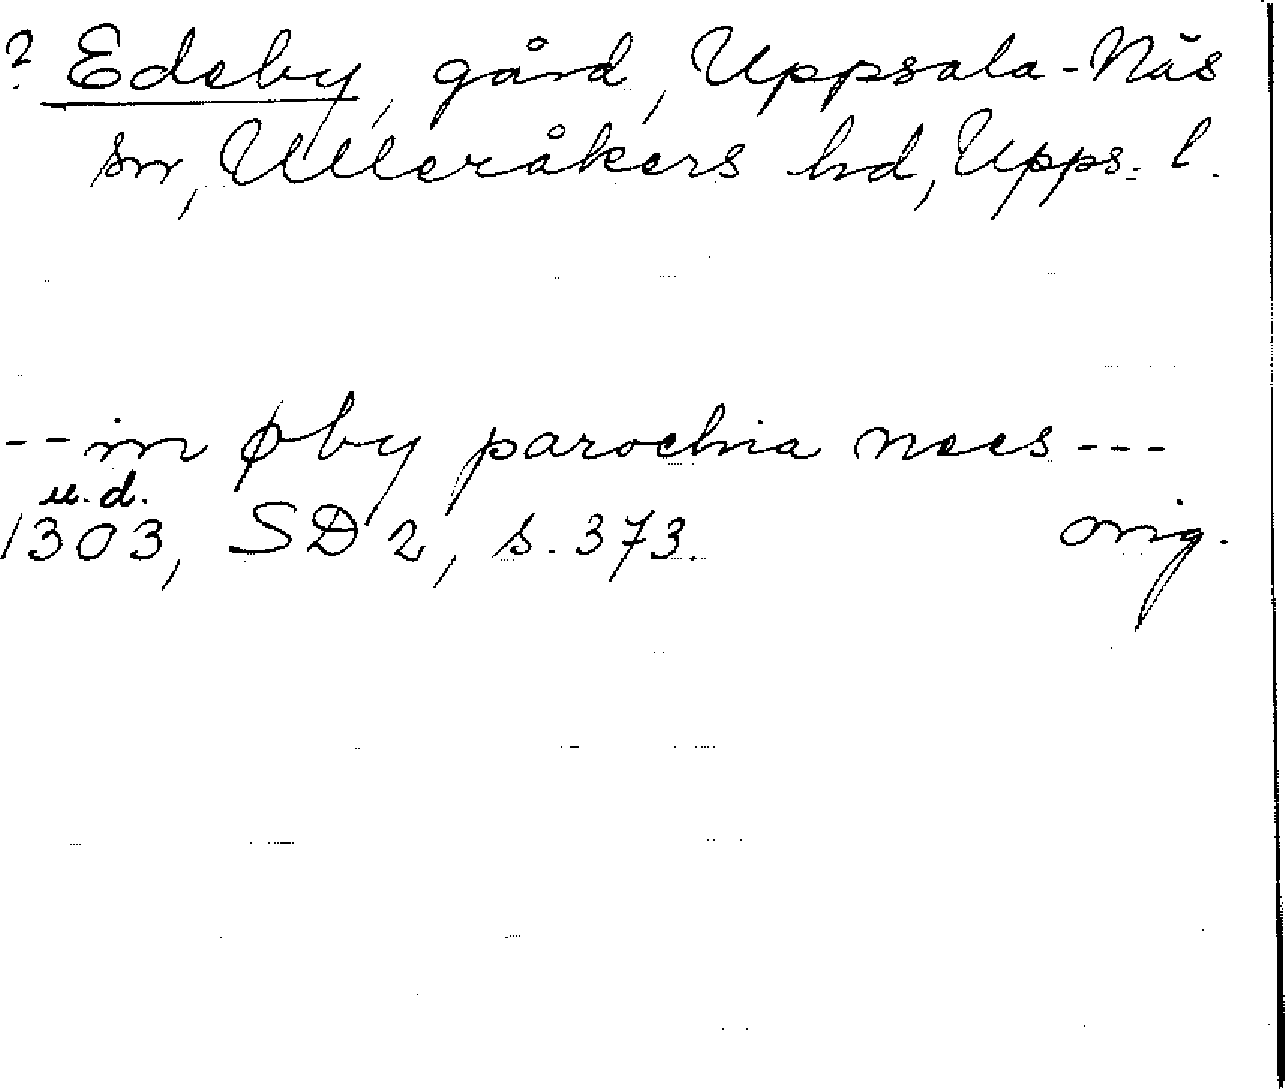 ? Edeby, gård, Uppsala-Näs
sn, Ulleråkers hd, Upps. l.
-- in øby parochia nees ---
u.d.
1303, SD 2, s. 373. orig.